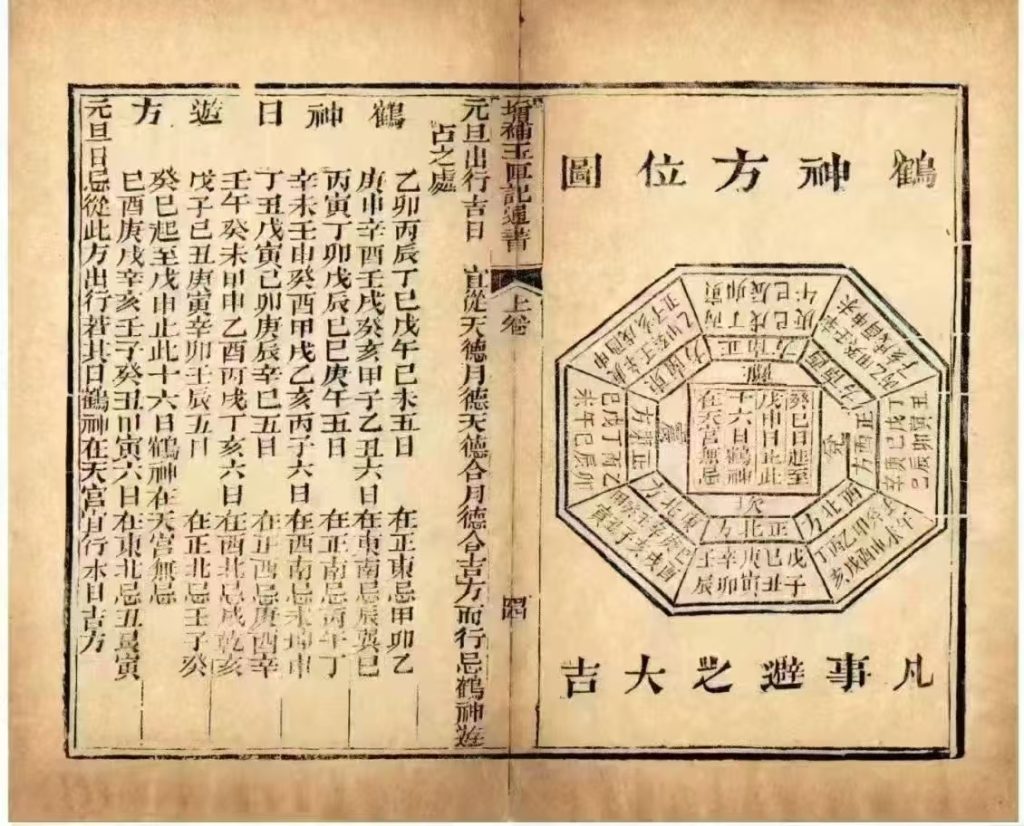 鶴神方位圖
正南方
丙寅丁卯戊辰己巳庚午
離
西南方
正西方
丁丑戊寅己卯庚辰辛巳
兌
西北方
正北方
戊子己丑庚寅辛卯壬辰
坎
東北方
正東方
乙卯丙辰丁巳戊午己未
震
東南方
癸巳日起至
戊申日止此
十六日鶴神
在天宮無忌
凡事避之大吉
增補玉匣記通書 上卷 四
元旦出行吉日 宜從天德月德天德合月德合吉方而行忌鶴神遊
占之處
鶴神日遊方
乙卯丙辰丁巳戊午己未五日 在正東忌甲卯乙
庚申辛酉壬戌癸亥甲子乙丑六日在東南忌辰巽巳
丙寅丁卯戊辰巳巳庚午五日 在正南忌丙午丁
辛未壬申癸酉甲戌乙亥丙子六日在西南忌未坤申
丁丑戊寅己卯庚辰辛巳五日 在正酉忌庚酉辛
壬午癸未甲申乙酉丙戌丁亥六日在西北忌戌乾亥
戊子己丑庚寅辛卯壬辰五日 在正北忌壬子癸
癸巳起至戊申止此十六日鶴神在天宮無忌
巳酉庚戌辛亥壬子癸丑甲寅六日在東北忌丑艮寅
元旦日忌從此方出行若其日鶴神在天宮宜行本日吉方